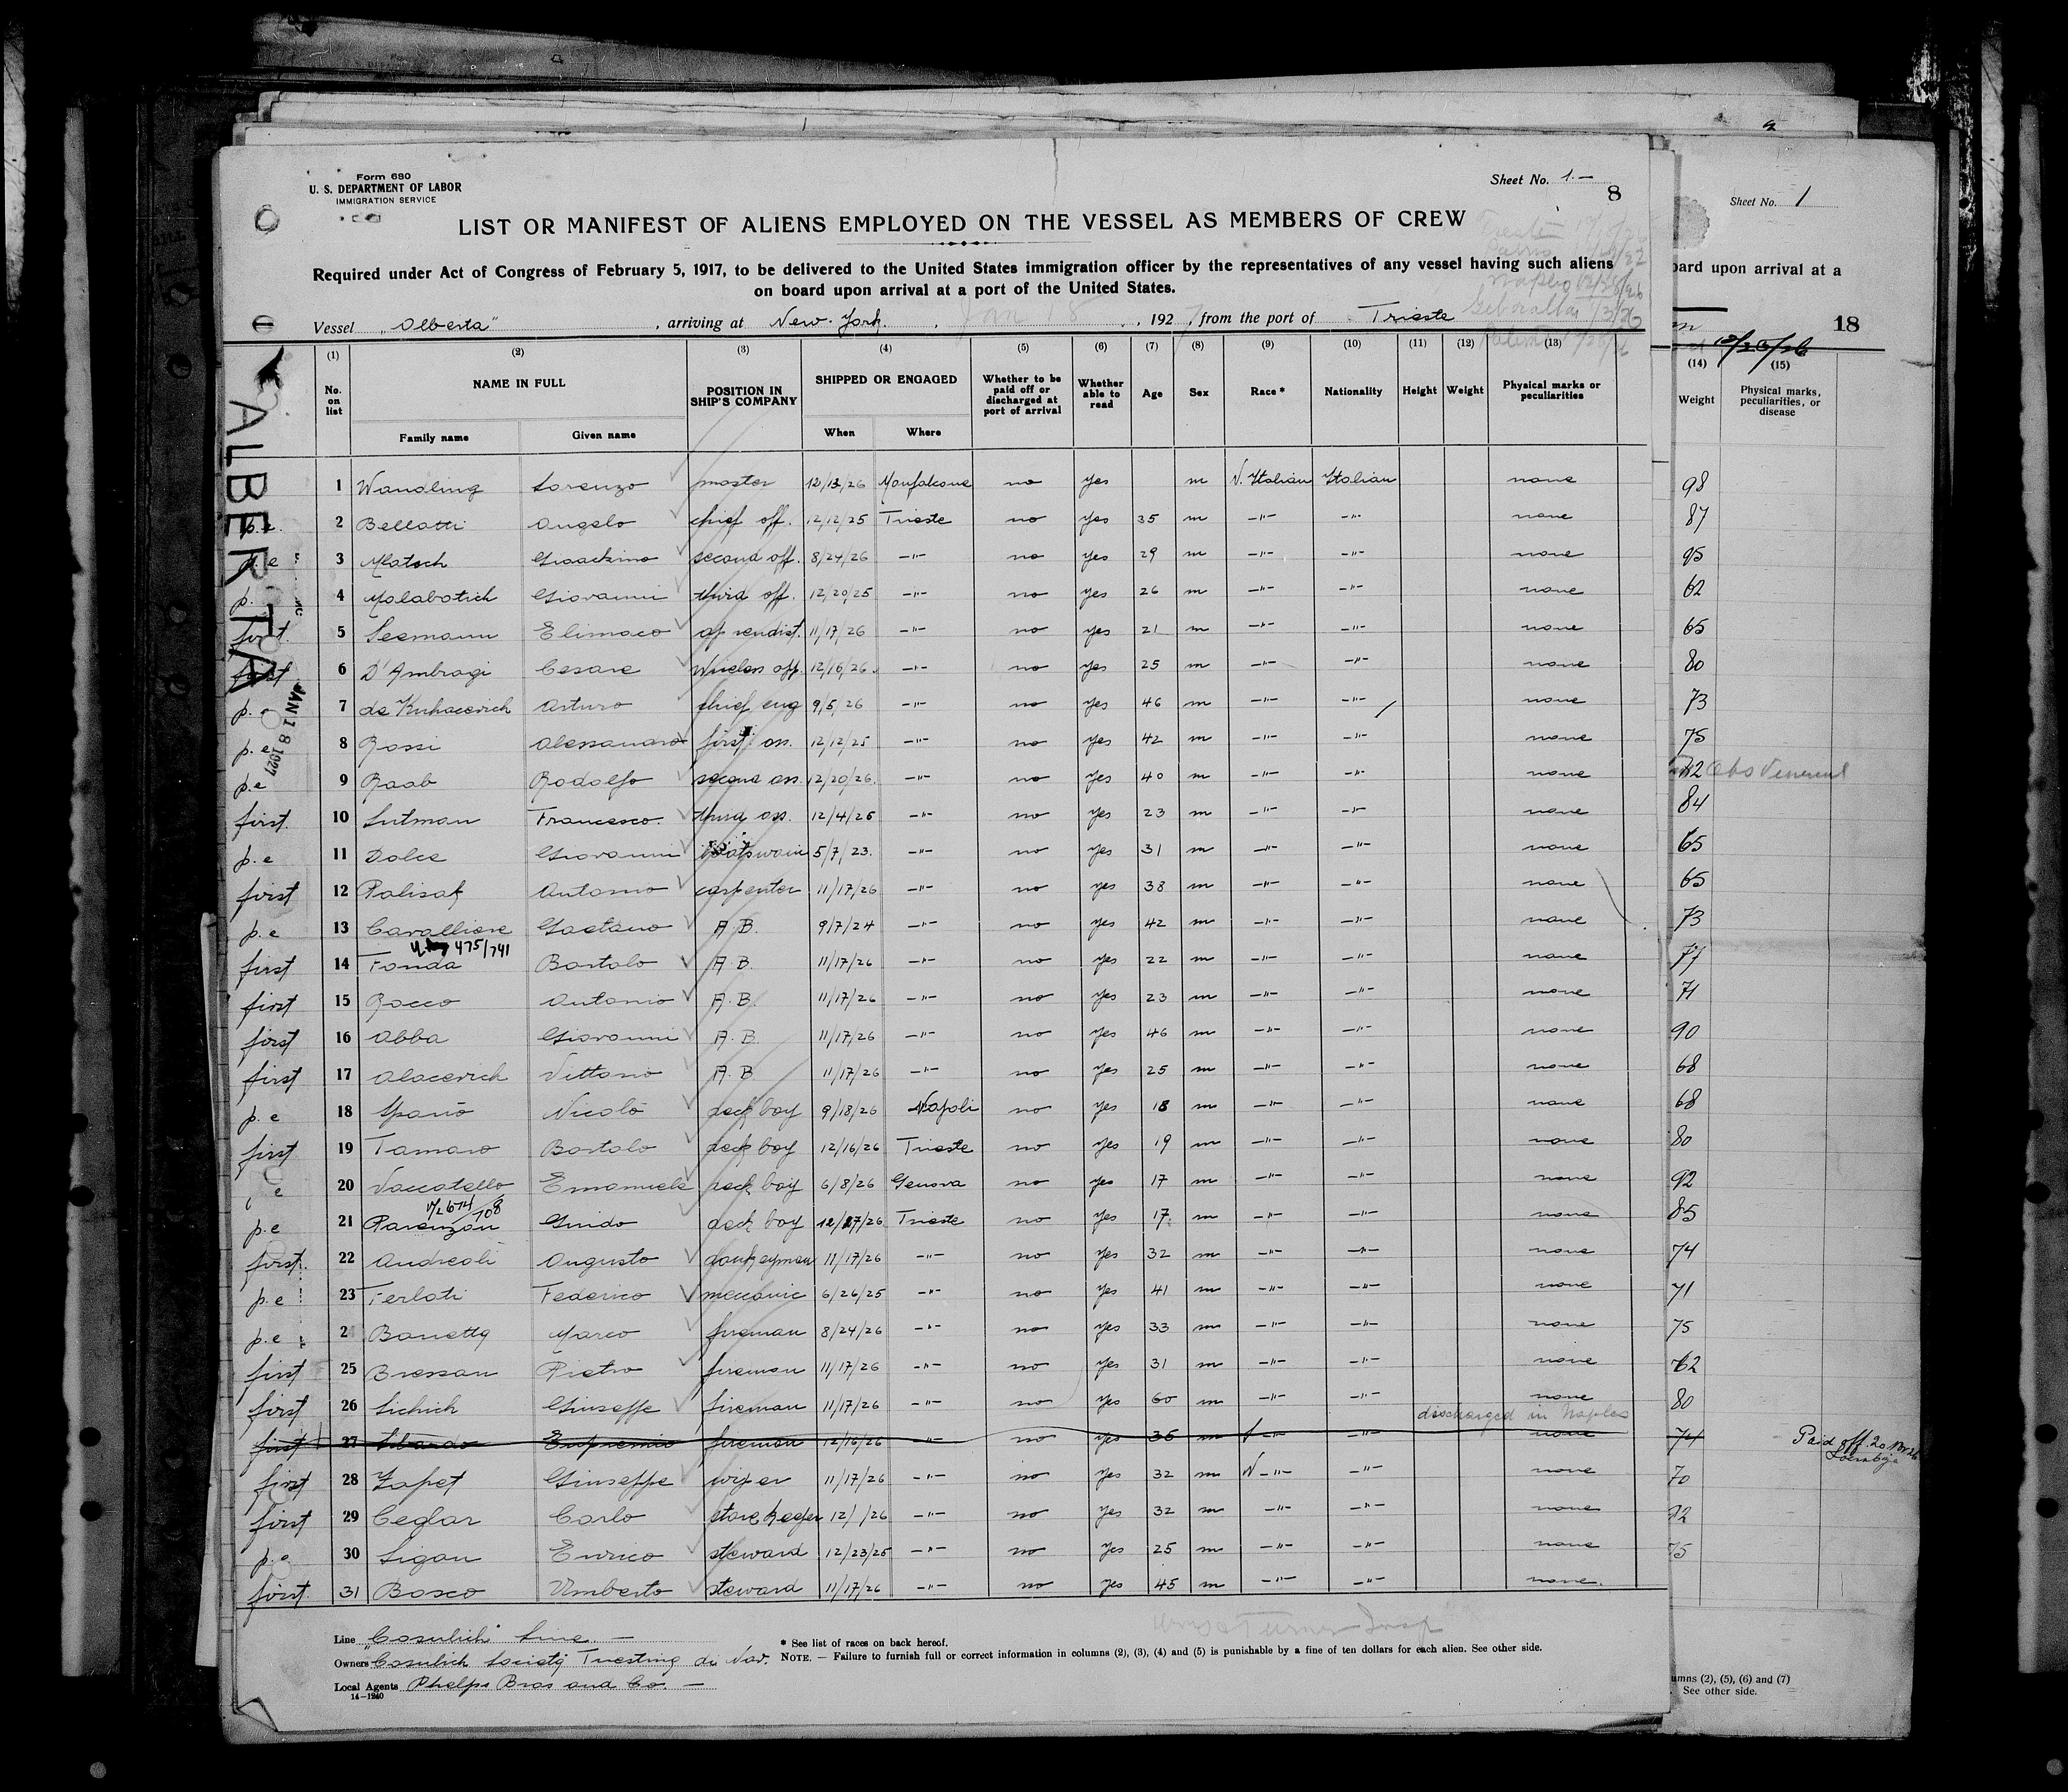 Form 680
U. S. DEPARTMENT OF LABOR
IMMIGRATION SERVICE
Sheet No. 1.—
8
LIST OR MANIFEST OF ALIENS EMPLOYED ON THE VESSEL AS MEMBERS OF CREW
Required under Act of Congress of February 5, 1917, to be delivered to the United States immigration officer by the representatives of any vessel having such aliens
on board upon arrival at a port of the United States.
Vessel "Alberta", arriving at New-York, Jan 18, 1927, from the port of Trieste
(1) (2) (3) (4) (5) (6) (7) (8) (9) (10) (11) (12) (13)
No. on list NAME IN FULL POSITION IN SHIP'S COMPANY SHIPPED OR ENGAGED Whether to be paid off or discharged at port of arrival Whether able to read Age Sex Race* Nationality Height Weight Physical marks or peculiarities
Family name Given name When Where
ALBERTA
JAN 18 1927
1 Wandling Lorenzo master 12/13/26 Monfalcone no yes m N. Italian Italian none
p.e. 2 Bellatti Angelo chief off. 12/12/25 Trieste no yes 35 m —"— —"— none
p.e 3 Matsch Gioachino second off. 8/24/26 —"— no yes 29 m —"— —"— none
p. 4 Malabotich Giovanni third off. 12/20/25 —"— no yes 26 m —"— —"— none
first 5 Seemann Elimaco 11/17/26 —"— no yes 21 m —"— —"— none
first 6 D'Ambrogi Cesare wireless off. 12/16/26 —"— no yes 25 m —"— —"— none
p. 7 de Kuhacevich Arturo chief eng 9/5/26 —"— no yes 46 m —"— —"— none
p.e 8 Rossi Alessandro first ass. 12/12/25 —"— no yes 42 m —"— —"— none
p.e 9 Raab Rodolfo second ass. 12/20/26 —"— no yes 40 m —"— —"— none
first. 10 Lutman Francesco third ass. 12/4/26 —"— no yes 23 m —"— —"— none
p.e 11 Dolce Giovanni boatswain 5/7/23. —"— no yes 31 m —"— —"— none
first 12 Palisak Antonio carpenter 11/17/26 —"— no yes 38 m —"— —"— none
p.e 13 Cavalliere Gaetano A.B. 9/7/24 —"— no yes 42 m —"— —"— none
475/741
first 14 Fonda Bortolo A.B. 11/17/26 —"— no yes 22 m —"— —"— none
first 15 Rocco Antonio A.B. 11/17/26 —"— no yes 23 m —"— —"— none
first 16 Abba Giovanni A.B. 11/17/26 —"— no yes 46 m —"— —"— none
first 17 Alacevich Vittorio A.B. 11/17/26 —"— no yes 25 m —"— —"— none
p.e 18 Spanò Nicolò deck boy 9/18/26 Napoli no yes 18 m —"— —"— none
first 19 Tamaro Bortolo deck boy 12/16/26 Trieste no yes 19 m —"— —"— none
e 20 Vaccatello Emanuele deck boy 6/8/26 Genova no yes 17 m —"— —"— none
p.e 21 Parenzan Guido deck boy 12/27/26 Trieste no yes 17 m —"— —"— none
first. 22 Andreoli Augusto donkeyman 11/17/26 —"— no yes 32 m —"— —"— none
p.e 23 Ferlati Federico meccanic 6/26/25 —"— no yes 41 m —"— —"— none
p.e 2 Banetta Marco fireman 8/24/26 —"— no yes 33 m —"— —"— none
first 25 Bressan Pietro fireman 11/17/26 —"— no yes 31 m —"— —"— none
first 26 Lichich Giuseppe fireman 11/17/26 —"— no yes 60 m —"— —"— none
discharged in Naples
first 27 Eufremio fireman 12/16/26 —"— no yes 36 m —"— —"— none
first 28 Zapet Giuseppe wiper 11/17/26 —"— no yes 32 m N —"— —"— none
first 29 Ceglar Carlo storekeeper 12/1/26 —"— no yes 32 m —"— —"— none
p.e 30 Ligan Enrico steward 12/23/25 —"— no yes 25 m —"— —"— none
first. 31 Bosco Umberto steward 11/17/26 —"— no yes 45 m —"— —"— none.
Line "Cosulich" Line. —
Owners Cosulich Società Triestina di Nav.
Local Agents Phelps Bros and Co. —
14—1240
* See list of races on back hereof.
NOTE. — Failure to furnish full or correct information in columns (2), (3), (4) and (5) is punishable by a fine of ten dollars for each alien. See other side.
Sheet No. 1
board upon arrival at a
18
12/26/26
(14) (15)
Weight Physical marks, peculiarities, or disease
98
87
95
62
65
80
73
75
84
65
65
73
77
71
90
68
68
80
92
85
74
71
75
62
80
74 Paid off
70
92
75
umns (2), (5), (6) and (7)
See other side.